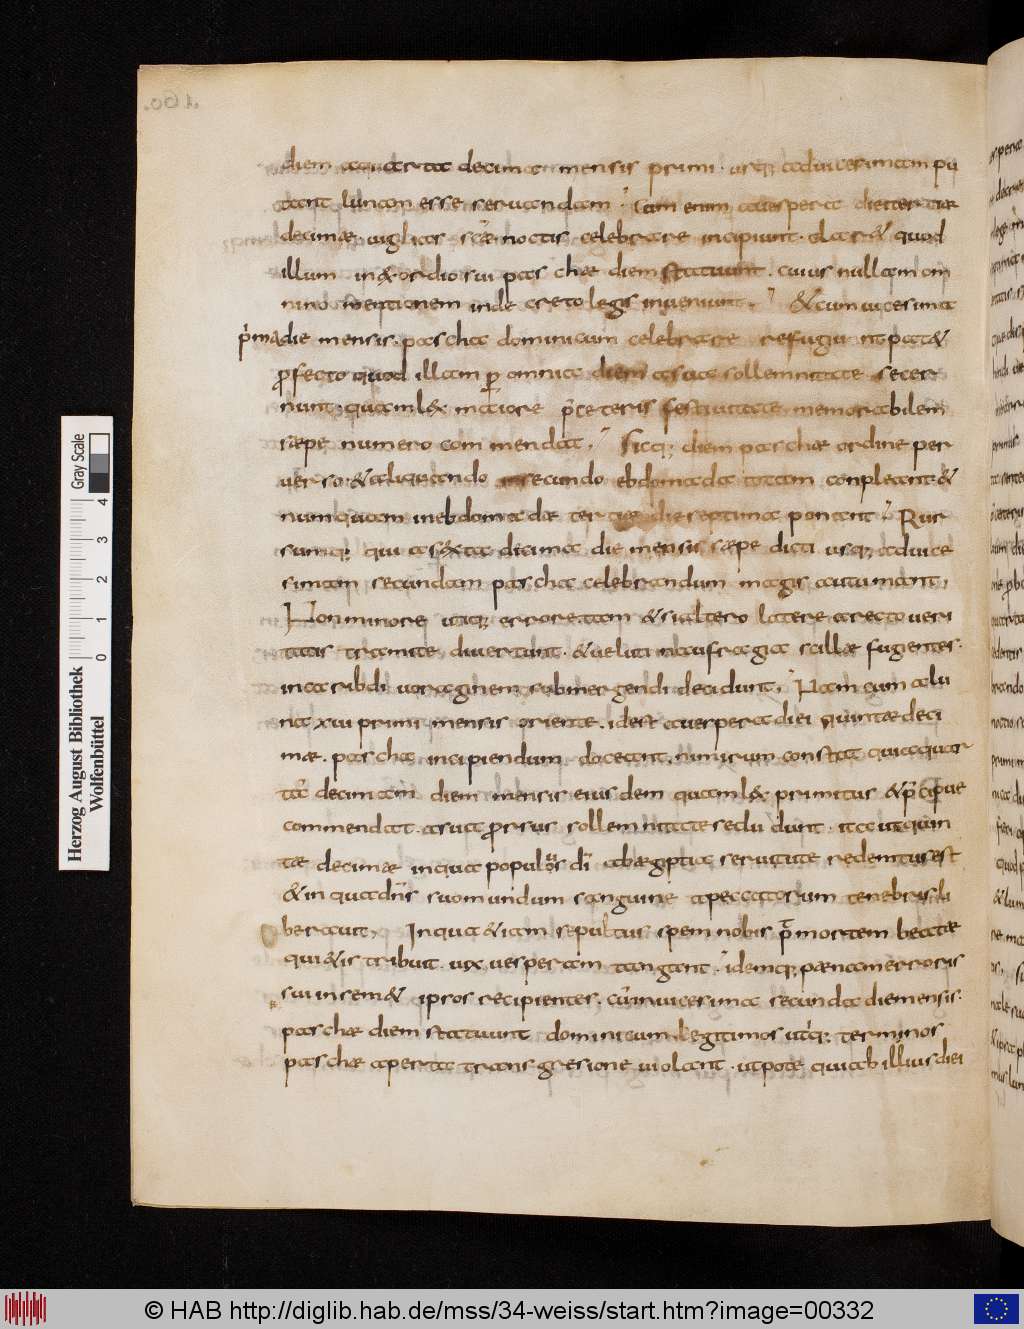 160.
diem a quarta decima mensis primi · usq; ad uicesimam pu
tant lunam esse seruandam · Cum enim a uespera diei tertiae
decimae uigilias scae noctis celebrare incipiunt · claret quod
illum in exordio sui paschae diem statuunt · cuius nullam om
nino mentionem in decreto legis inueniunt, Et cum uicesima
p'ma die mensis · pascha dominicum celebrare refugiunt patet
profecto quod illam per omnia diem a sua sollemnitate secer
nunt; quam lex maiore p'ceteris festiuitate memorabilem
saepe numero commendat, Sicq; diem paschae ordine per
uerso · et aliquando in secundo ebdomada totam conpleant et
numquam in ebdomadae tertiae die septima ponant · Rur
sumq; qui a sexta decima die mensis saepe dicti usq; ad uice
simam secundam pascha celebrandum magis autumant,
Non minore utiq; errore tam et si altero latere a recto ueri
tatis tramite diuertunt · et ueluti naufragia scillae fugientes ·
in caribdi uoraginem submergendi decidunt, Nam cum a lu
na xui primi mensis oriente · idest a uespera diei quintae deci
mae · pascha incipiendum doceant · nimirum constat quia quar
tã decimam diem mensis eiusdem quam lex primitus et p'cipue
commendat · a sua prorsus sollemnitate secludunt · ita ut quin
tae decimae in qua populus di ab aegptia seruitute redemtus est
et in qua dñs suo mundum sanguine a peccatorum tenebris li
berauit, In qua etiam sepultus spem nobis p' mortem beatae
quietis tribuit · uix uesperam tangant · idemq; paenam erroris
sui in semet ipsos recipientes · cum in uicesima secunda die mensis ·
paschae diem statuunt dominicum legitimos utiq; terminos
paschae aperta transgresione uiolant · utpote qui ab illius diei
Gray Scale
0 1 2 3 4
Herzog August Bibliothek
Wolfenbüttel
© HAB http://diglib.hab.de/mss/34-weiss/start.htm?image=00332